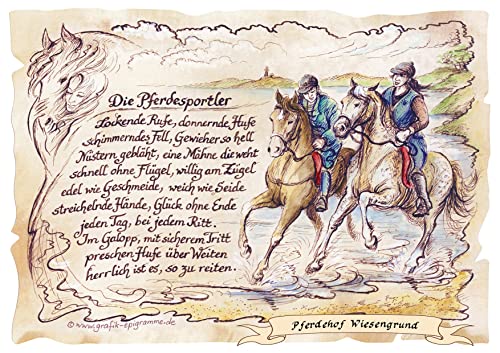 Die Pferdesportler
Lockende Rufe, donnernde Hufe
schimmerndes Fell, Gewieher so hell
Nüstern gebläht, eine Mähne die weht
schnell ohne Flügel, willig am Zügel
edel wie Geschmeide, weich wie Seide
streichelnde Hände, Glück ohne Ende
jeden Tag, bei jedem Ritt.
Im Galopp, mit sicherem Tritt
preschen Hufe über Weiten
herrlich ist es, so zu reiten.
© www.grafik-epigramme.de
Pferdehof Wiesengrund